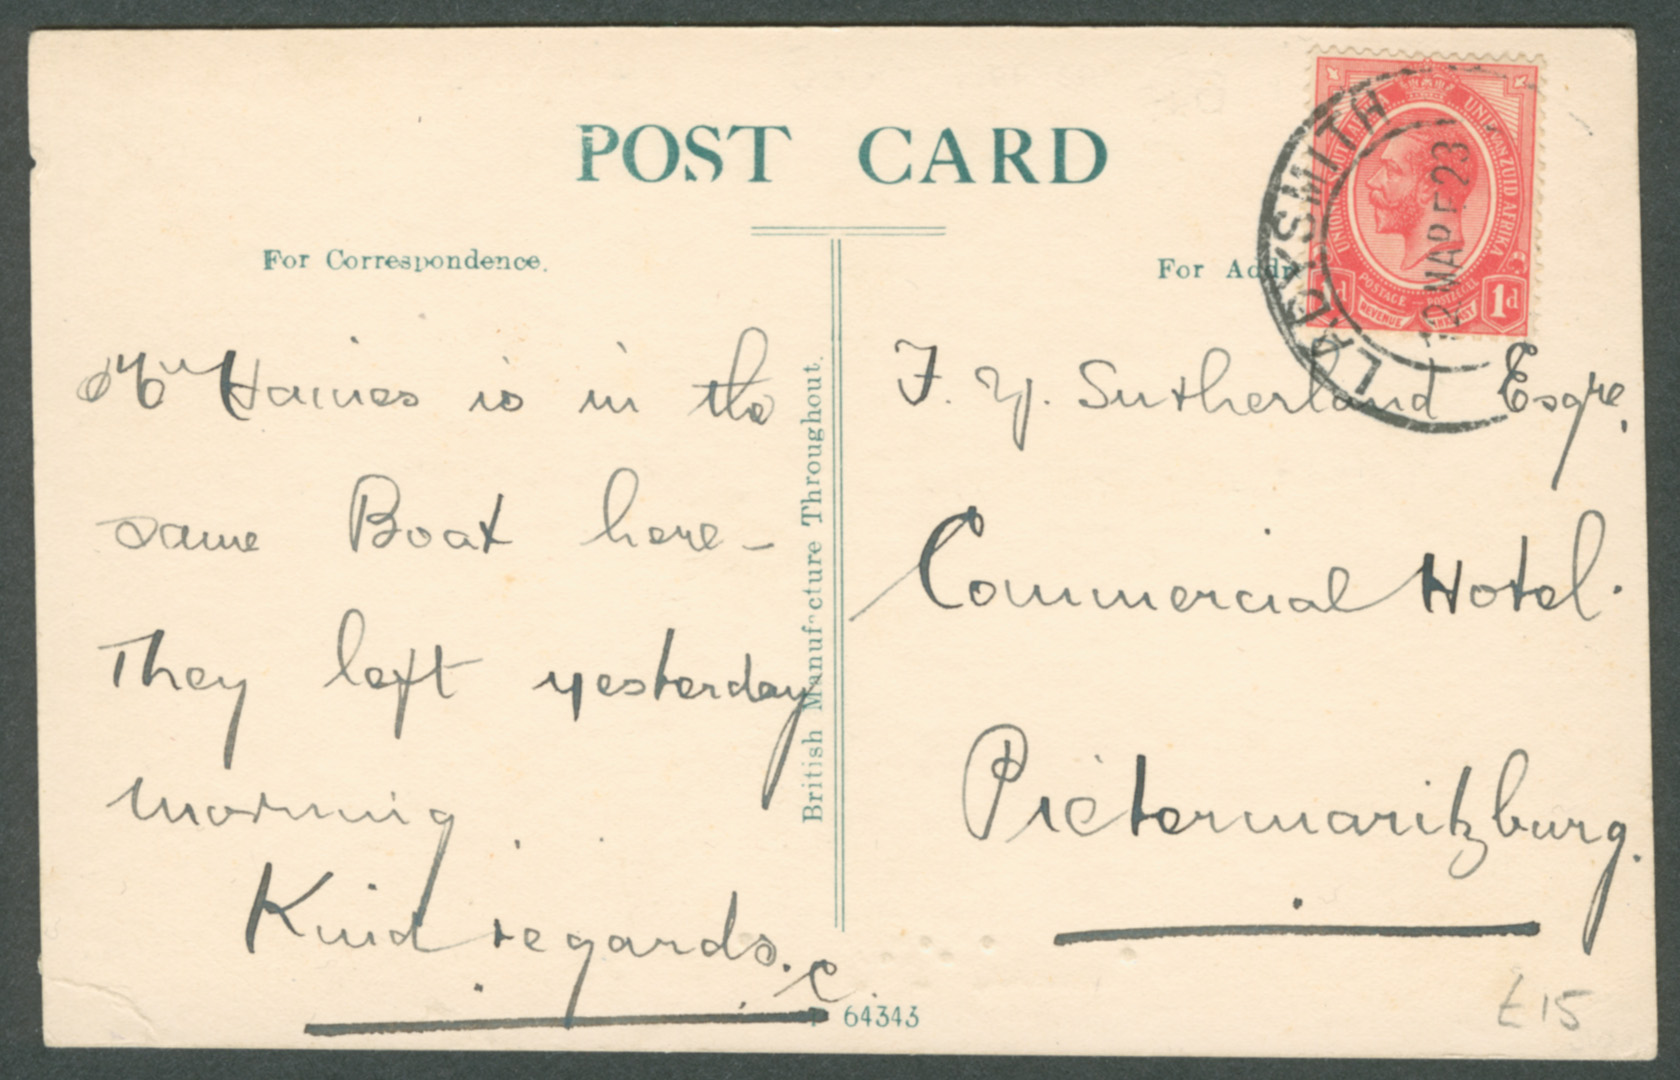 POST CARD
For Correspondence.
Mr Haines is in the
same Boat here -
They left yesterday
morning.
Kind regards. C.
British Manufacture Throughout.
64343
For Addr
F. Y. Sutherland Esqre,
Commercial Hotel.
Pietermaritzburg.
£15
LADYSMITH
MAR 23
UNION OF SOUTH AFRICA
UNIE VAN ZUID AFRIKA
POSTAGE POSTZEGEL
REVENUE INKOMST
1d